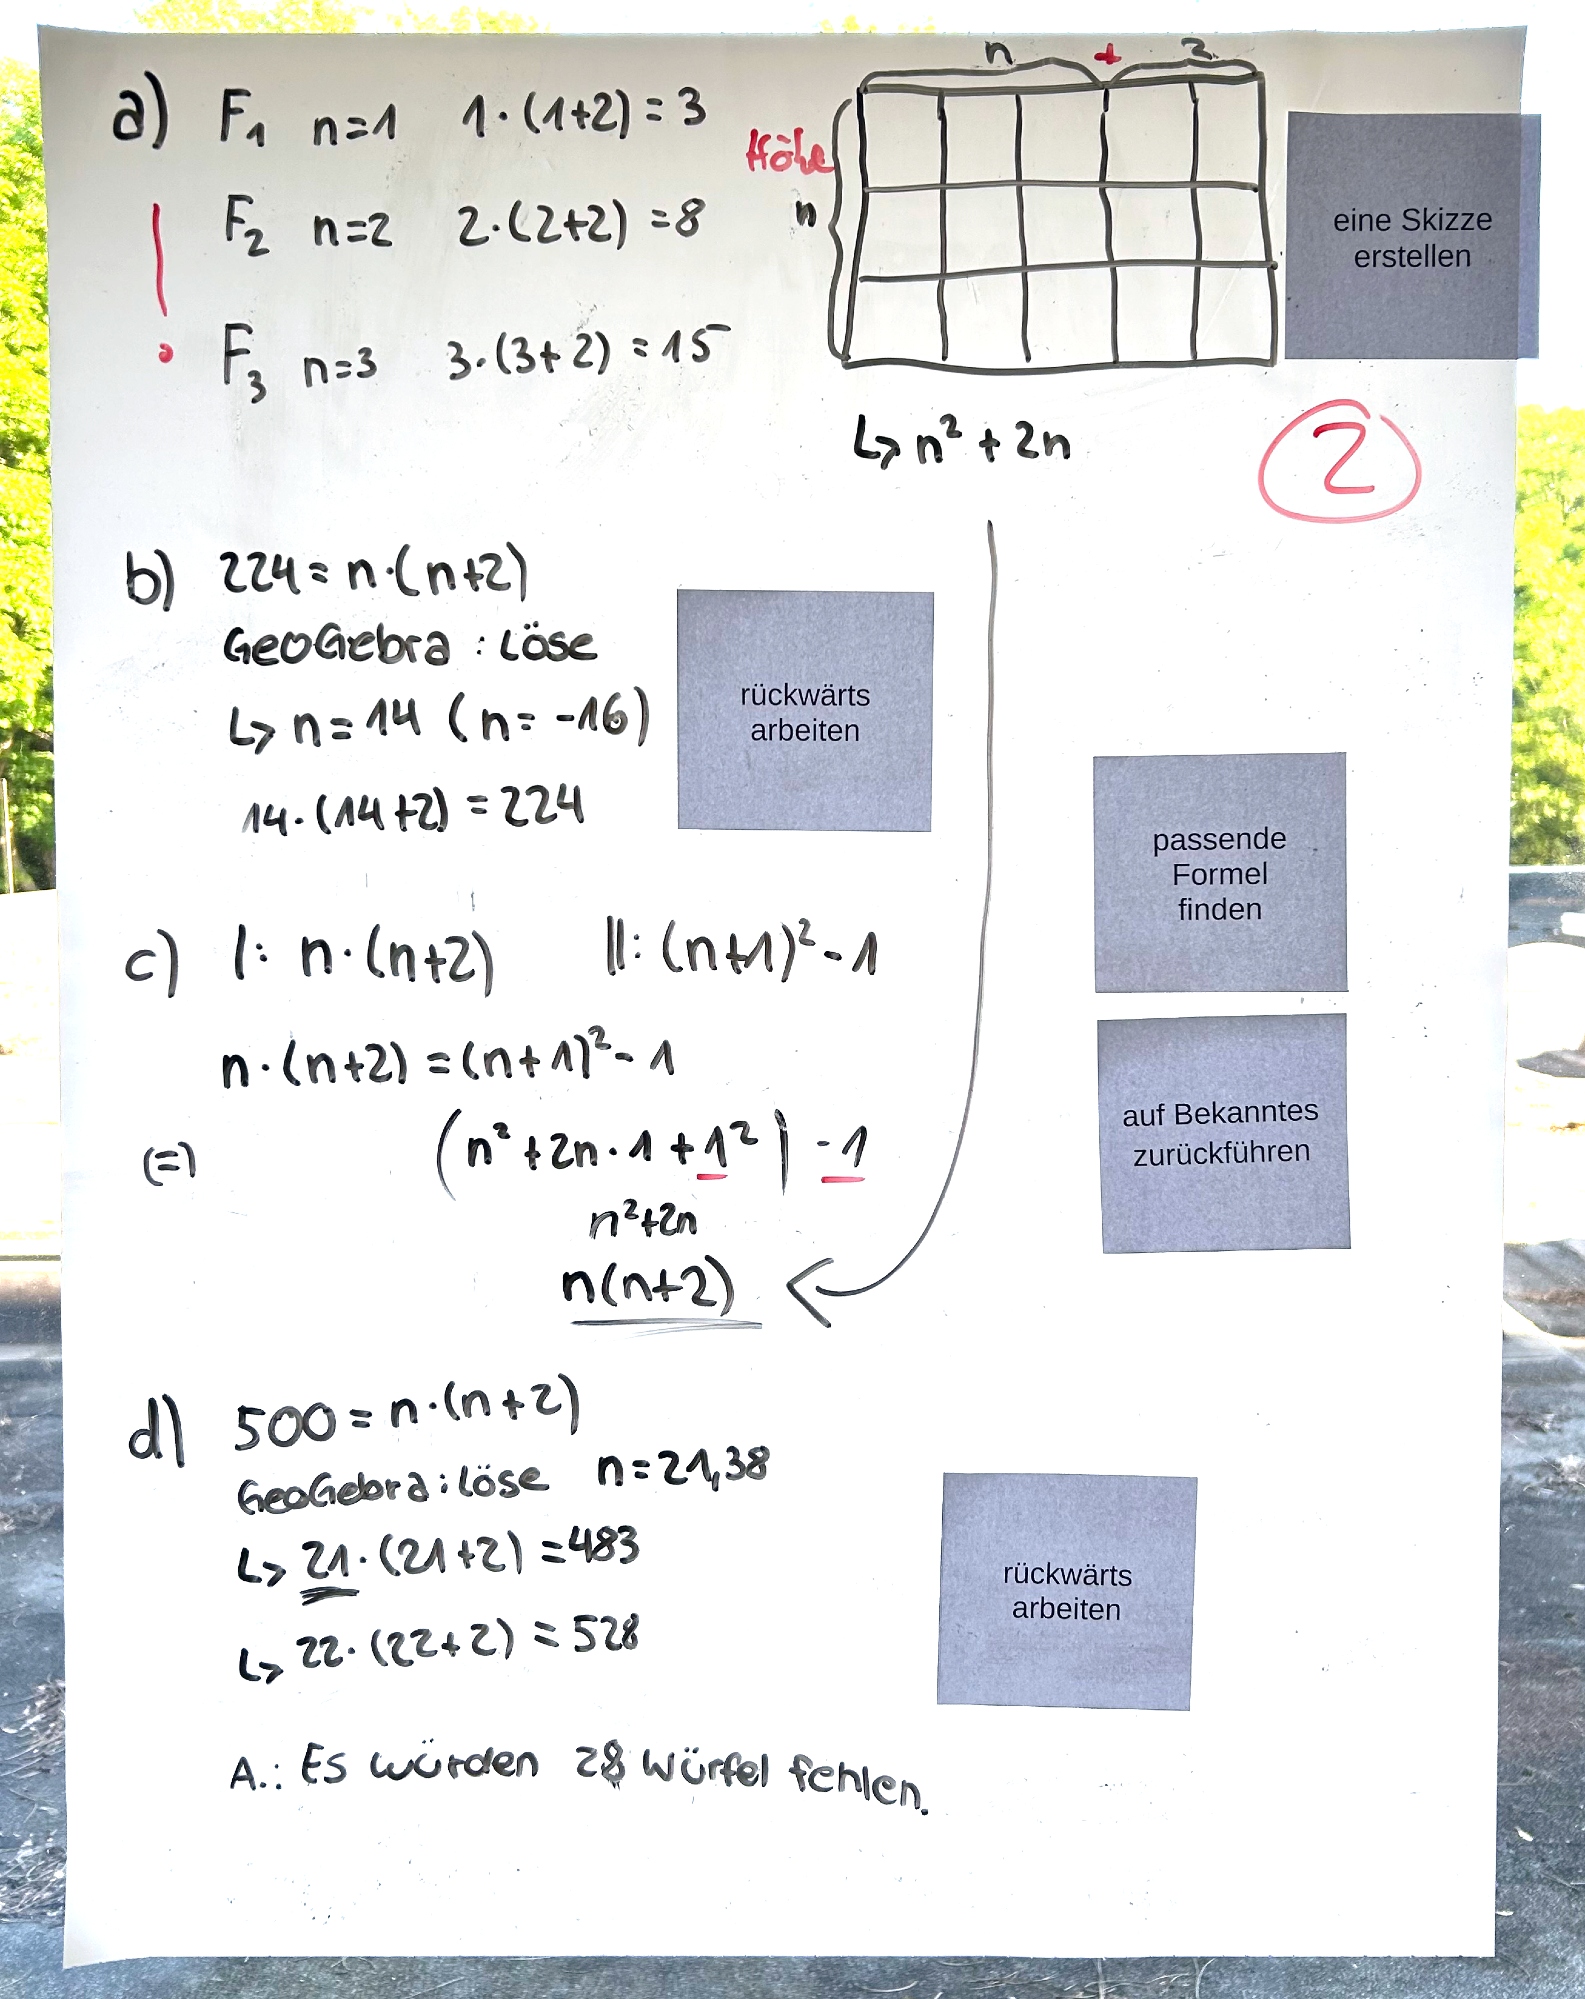 a) F₁ n=1 1·(1+2)=3
F₂ n=2 2·(2+2)=8
F₃ n=3 3·(3+2)=15
n + 2
Höhe
n
eine Skizze
erstellen
↳ n² + 2n
2
b) 224=n·(n+2)
GeoGebra: Löse
↳ n=14 (n=-16)
14·(14+2)=224
rückwärts
arbeiten
passende
Formel
finden
c) I: n·(n+2) II: (n+1)²-1
n·(n+2)=(n+1)²-1
(=) (n²+2n·1+1²)-1
n²+2n
n(n+2)
auf Bekanntes
zurückführen
d) 500=n·(n+2)
GeoGebra: löse n=21,38
↳ 21·(21+2)=483
↳ 22·(22+2)=528
rückwärts
arbeiten
A.: Es würden 28 Würfel fehlen.